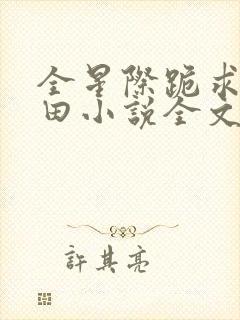 全星際跪求
田小説全文
許其亮